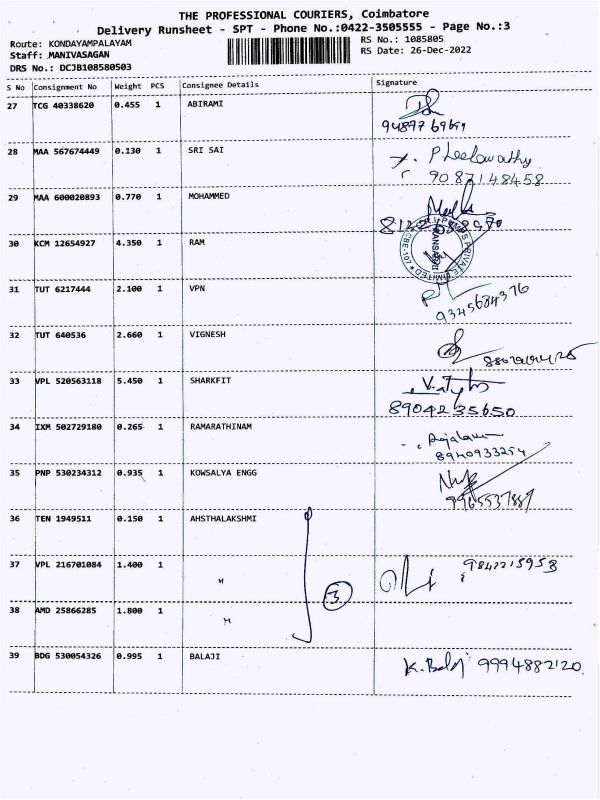 THE PROFESSIONAL COURIERS, Coimbatore
Delivery Runsheet - SPT - Phone No.:0422-3505555 - Page No.:3
Route: KONDAYAMPALAYAM RS No.: 1085805
Staff: MANIVASAGAN RS Date: 26-Dec-2022
DRS No.: DCJB108580503
S No Consignment No Weight PCS Consignee Details Signature
27 TCG 40338620 0.455 1 ABIRAMI
28 MAA 567674449 0.130 1 SRI SAI
9087148458
29 MAA 600020893 0.770 1 MOHAMMED
30 KCM 12654927 4.350 1 RAM
31 TUT 6217444 2.100 1 VPN
9345684376
32 TUT 640536 2.660 1 VIGNESH
33 VPL 520563118 5.450 1 SHARKFIT
8904235650
34 IXM 502729180 0.265 1 RAMARATHINAM
8940933254
35 PNP 530234312 0.935 1 KOWSALYA ENGG
36 TEN 1949511 0.150 1 AHSTHALAKSHMI
37 VPL 216701084 1.400 1 " 9842215953
3
38 AMD 25866285 1.800 1 "
39 BDG 530054326 0.995 1 BALAJI K. Balaji 9994882120.